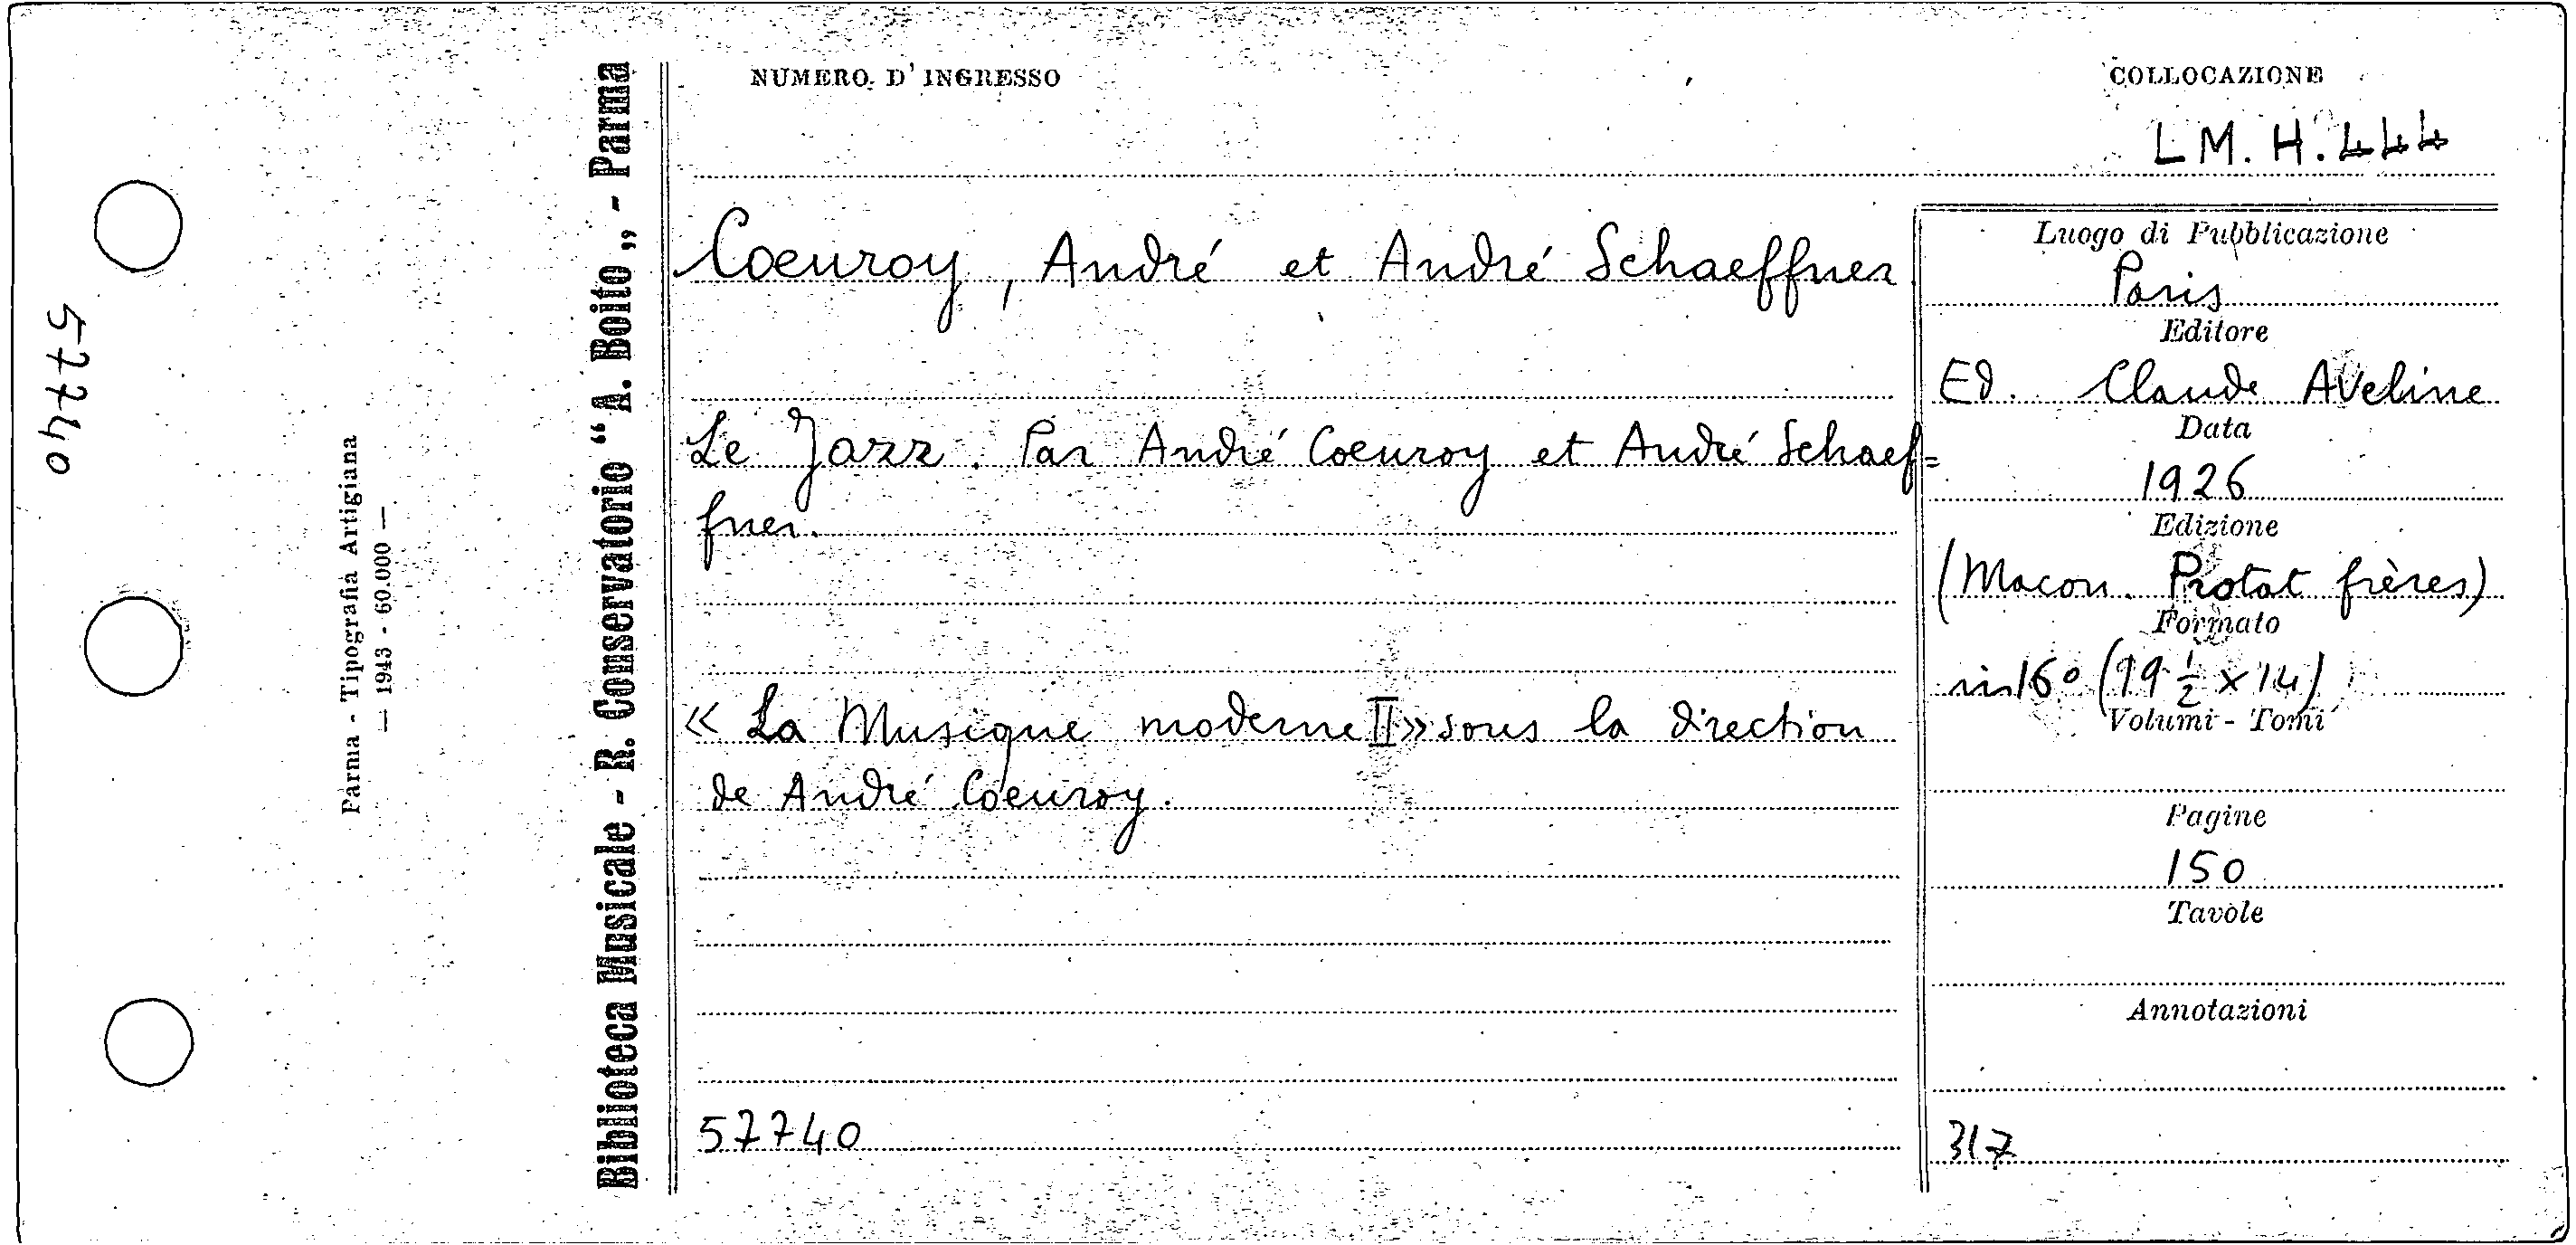 NUMERO D' INGRESSO
COLLOCAZIONE
LM. H. 444
Coeuroy, André et André Schaeffner
Le Jazz. Par André Coeuroy et André Schaef=
fner.
« La Musique moderne II» sous la direction
de André Coeuroy.
57740
Luogo di Pubblicazione
Paris
Editore
Ed. Claude Aveline
Data
1926
Edizione
(Macon. Protat frères)
Formato
in 16° (19 ½ x 14)
Volumi - Tomi
Pagine
150
Tavole
Annotazioni
317
Biblioteca Musicale - R. Conservatorio “A. Boito„ - Parma
Parma - Tipografia Artigiana
— 1943 - 60.000 —
57740